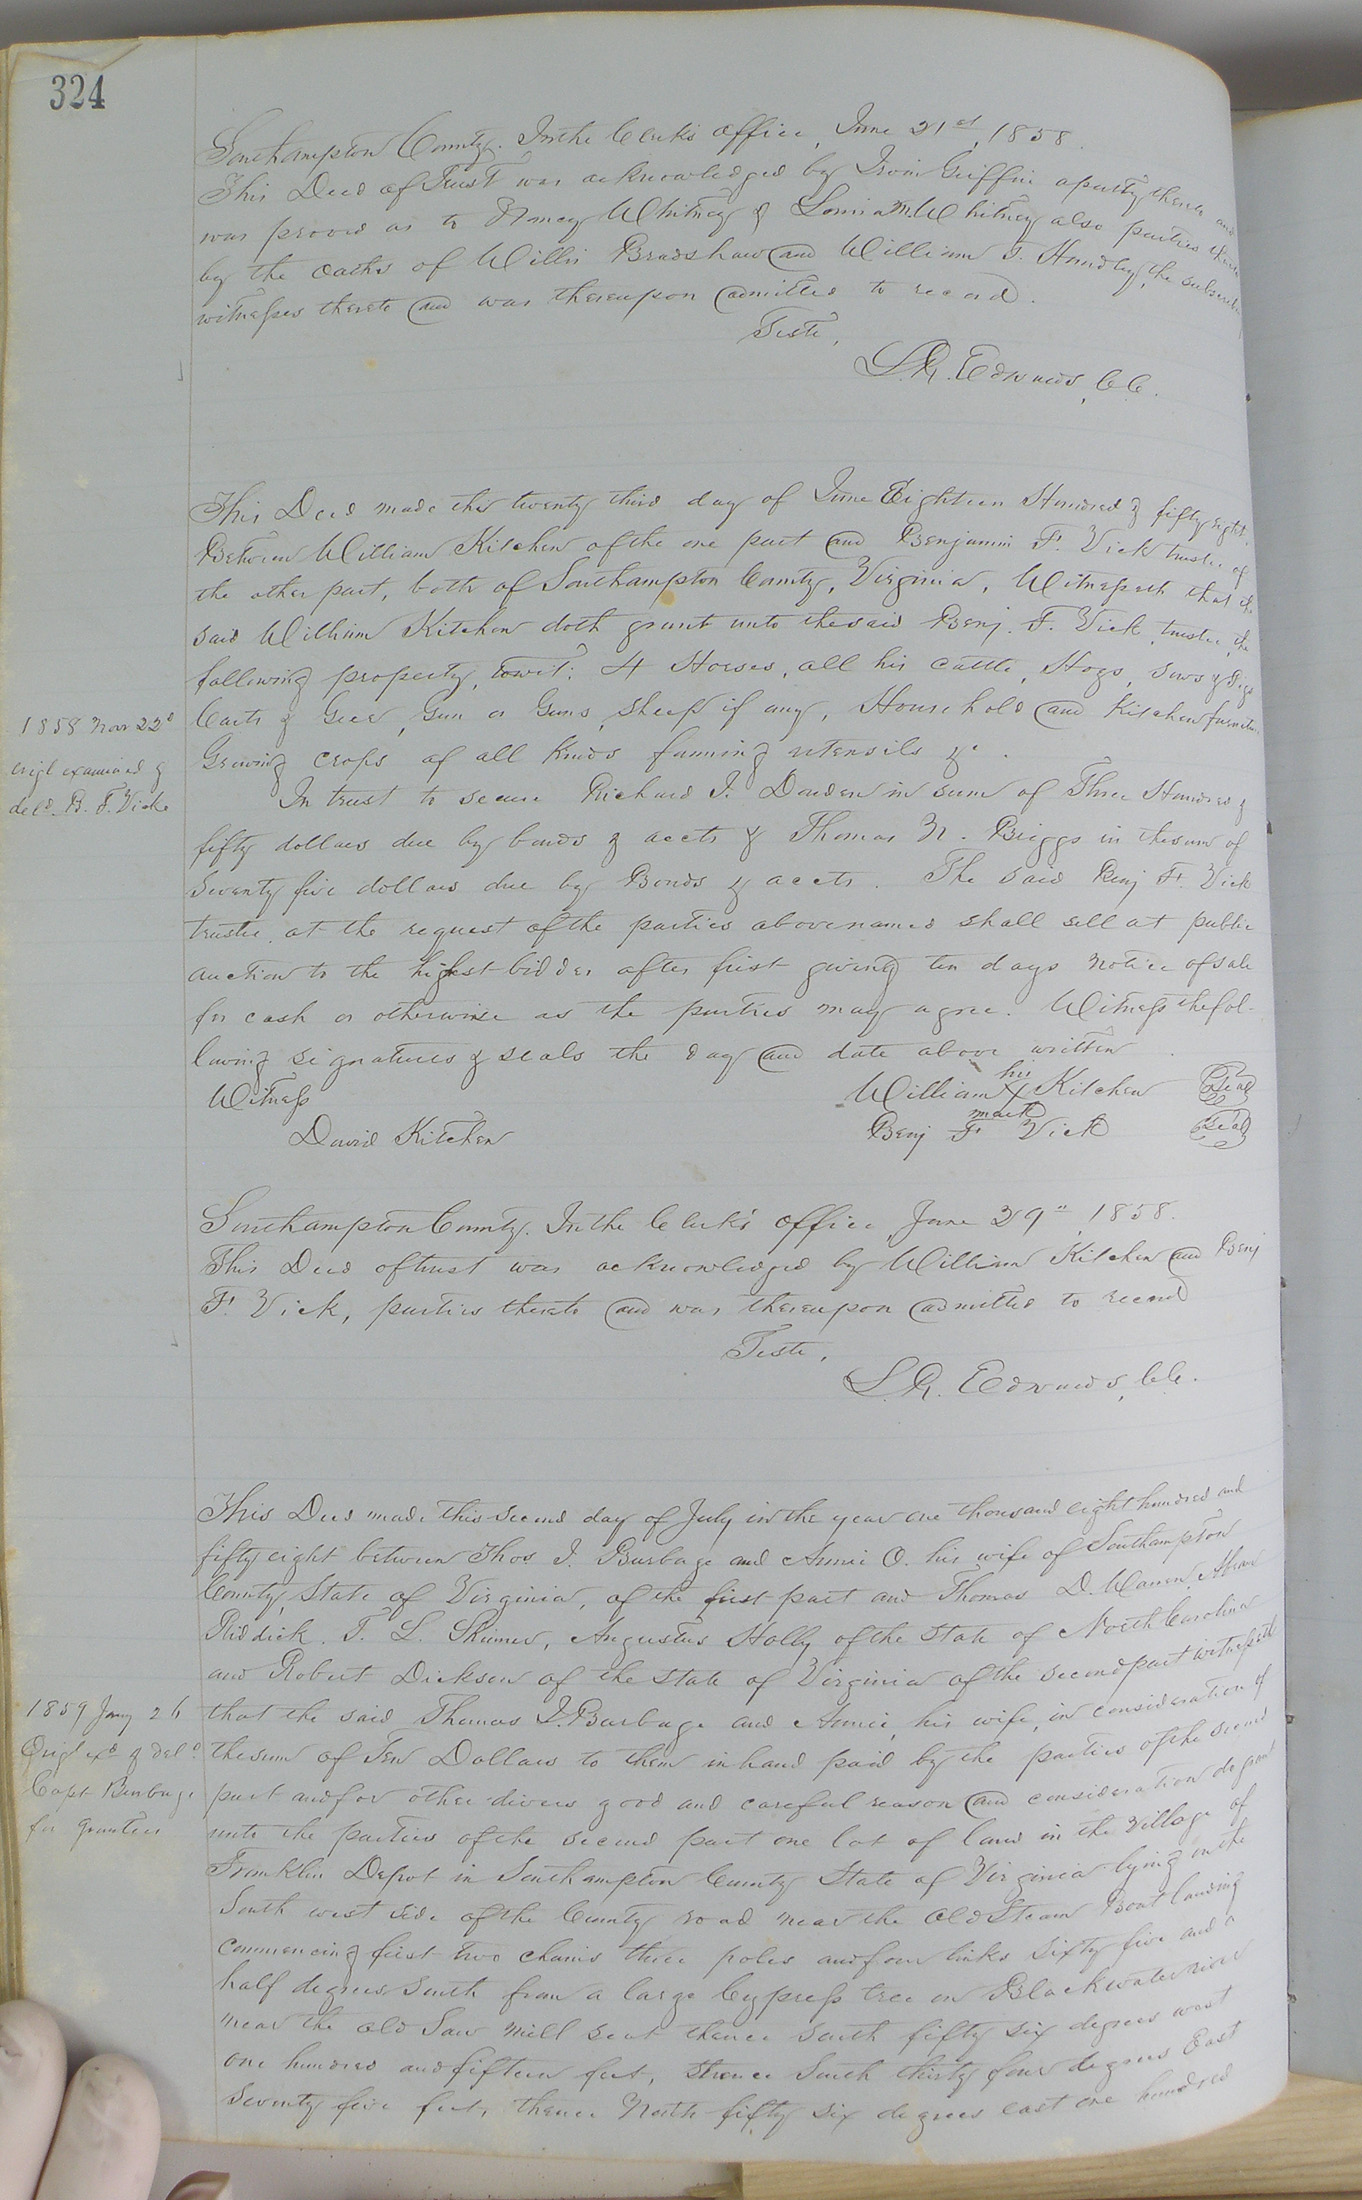 324
Southampton County. In the Clerk's office, June 21st, 1858.
This Deed of Trust was acknowledged by Irvin Griffin a party thereto and
was proved as to Nancy Whitney & Whitney also parties thereto
by the oaths of Willis Bradshaw and William the subscribing
witnesses thereto and was thereupon admitted to record.
Teste,
L. R. Edwards, C.C.
This Deed made this twenty third day of June Eighteen Hundred & fifty eight,
Between William Kitchen of the one part and Benjamin F. Vick trustee of
the other part, both of Southampton County, Virginia, Witnesseth that the
said William Kitchen doth grant unto the said Benj. F. Vick, trustee, the
following property, towit: 4 Horses, all his cattle, Hogs, sows & Pigs
Carts & Geer, Gun or Guns, sheep if any, Household and Kitchen furniture
Growing crops of all kinds farming utensils &c.
1858 Nov 22d
origl examined &
deld. B. F. Vick
In trust to secure Richard J. Darden in sum of Three Hundred &
fifty dollars due by bonds & accts & Thomas N. Briggs in the sum of
Seventy five dollars due by Bonds & accts. The said Benj F. Vick
trustee at the request of the parties above named shall sell at public
auction to the highest bidder after first giving ten days notice of sale
for cash or otherwise as the parties may agree. Witness the fol-
lowing signatures & seals the day and date above written.
Witness
his
William X Kitchen Seal
mark
David Kitchen
Benj F Vick Seal
Southampton County. In the Clerk's office, June 29", 1858.
This Deed of trust was acknowledged by William Kitchen and Benj
F. Vick, parties thereto and was thereupon admitted to record
Teste,
L. R. Edwards, C.C.
This Deed made this second day of July in the year one thousand eight hundred and
fifty eight between Thos J. Burbage and Annie O. his wife of Southampton
County, State of Virginia, of the first part and Thomas D. Warren, Abram
Riddick. T. L. Skinner, Augustus Holly of the State of North Carolina
and Robert Dickson of the State of Virginia of the second part witnesseth
that the said Thomas J. Burbage and Annie, his wife, in consideration of
the sum of Ten Dollars to them in hand paid by the parties of the second
part and for other divers good and careful reason and consideration do grant
unto the parties of the second part one lot of land in the Village of
Franklin Depot in Southampton County State of Virginia lying on the
South west side of the County road near the Old Steam Boat landing
commencing first two chains three poles and four links sixty five and a
half degrees South from a large Cypress tree on Blackwater river
near the old Saw mill seat thence South fifty six degrees west
one hundred and fifteen feet, thence South thirty four degrees East
seventy five feet, thence North fifty six degrees east one hundred
1859 Jany 26
Origl exd & deld
Capt Burbage
for Grantees